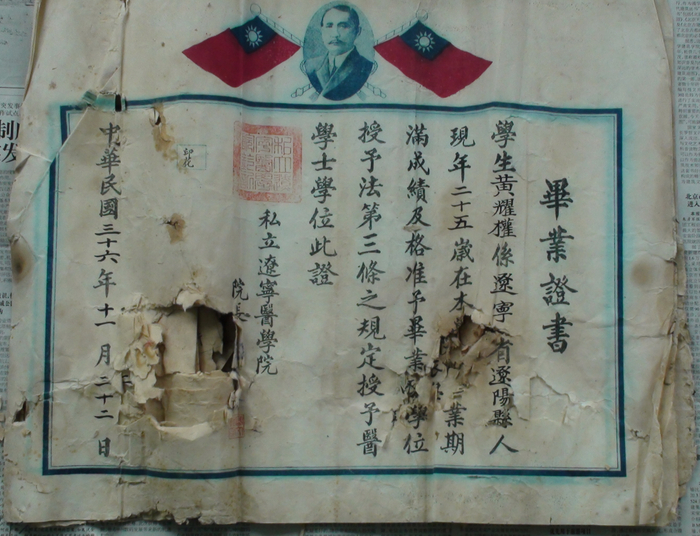 畢業證書
學生黃耀權係遼寧省遼陽縣人
現年二十五歲在本 業期
滿成績及格准予畢業 學位
授予法第三條之規定授予醫
學士學位此證
私立遼寧醫學院
院長
印花
中華民國三十六年十一月二十二日